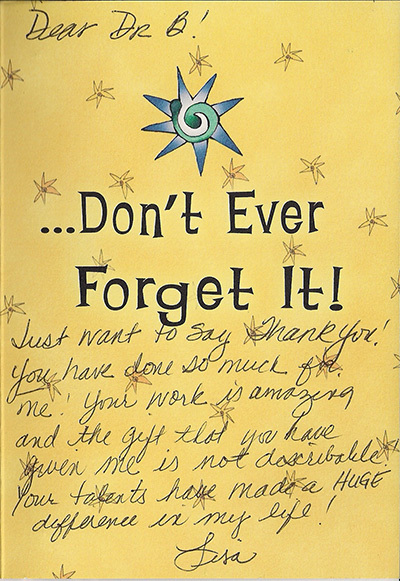 Dear Dr B!
...Don't Ever
Forget It!
Just want to say Thank You!
You have done so much for
me! Your work is amazing
and the gift that you have
given me is not describable!
Your talents have made a HUGE
difference in my life!
Lisa